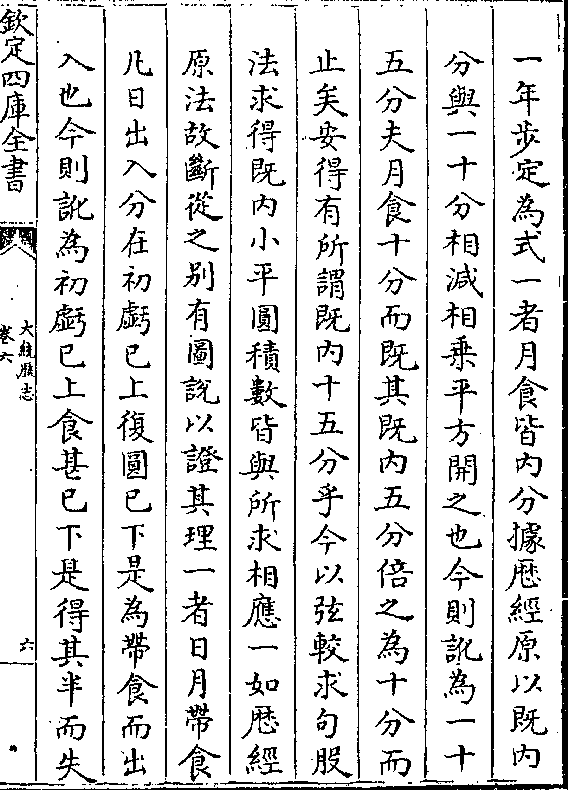 一年步定為式一者月食皆内分據厯經原以既内
分與一十分相減相乗平方開之也今則訛為一十
五分夫月食十分而既其既内五分倍之為十分而
止矣安得有所謂既内十五分乎今以弦較求句股
法求得既内小平圓積數皆與所求相應一如厯經
原法故斷從之别有圖説以證其理一者日月帶食
凡日出入分在初虧已上復圓已下是為帶食而出
入也今則訛為初虧已上食甚已下是得其半而失
欽定四庫全書
大統厯志
卷六
六